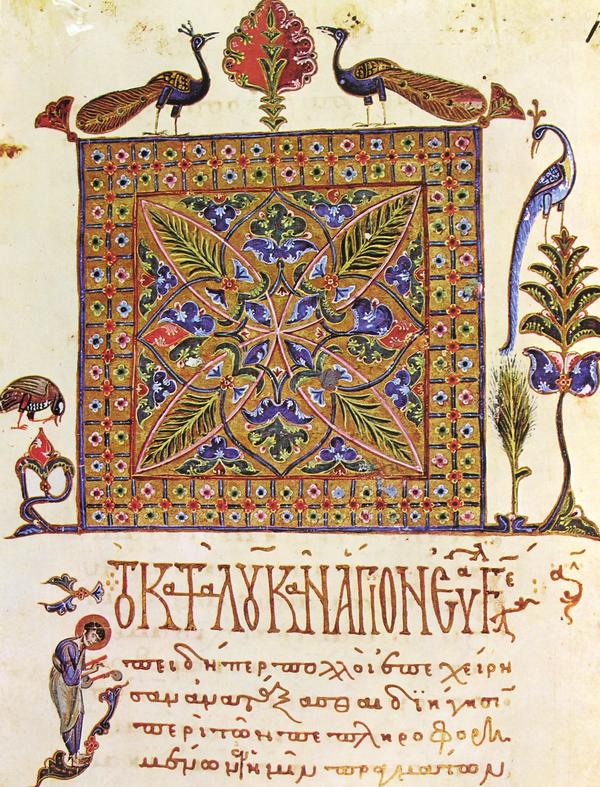 ΤΟ ΚΑΤΑ ΛΟΥΚΑΝ ΑΓΙΟΝ ΕΥΑΓΓΕ
πειδήπερ πολλοὶ ἐπεχείρη
σαν ἀνατάξασθαι διήγησιν
περὶ τῶν πεπληροφορη
μένων ἐν ἡμῖν πραγμάτων